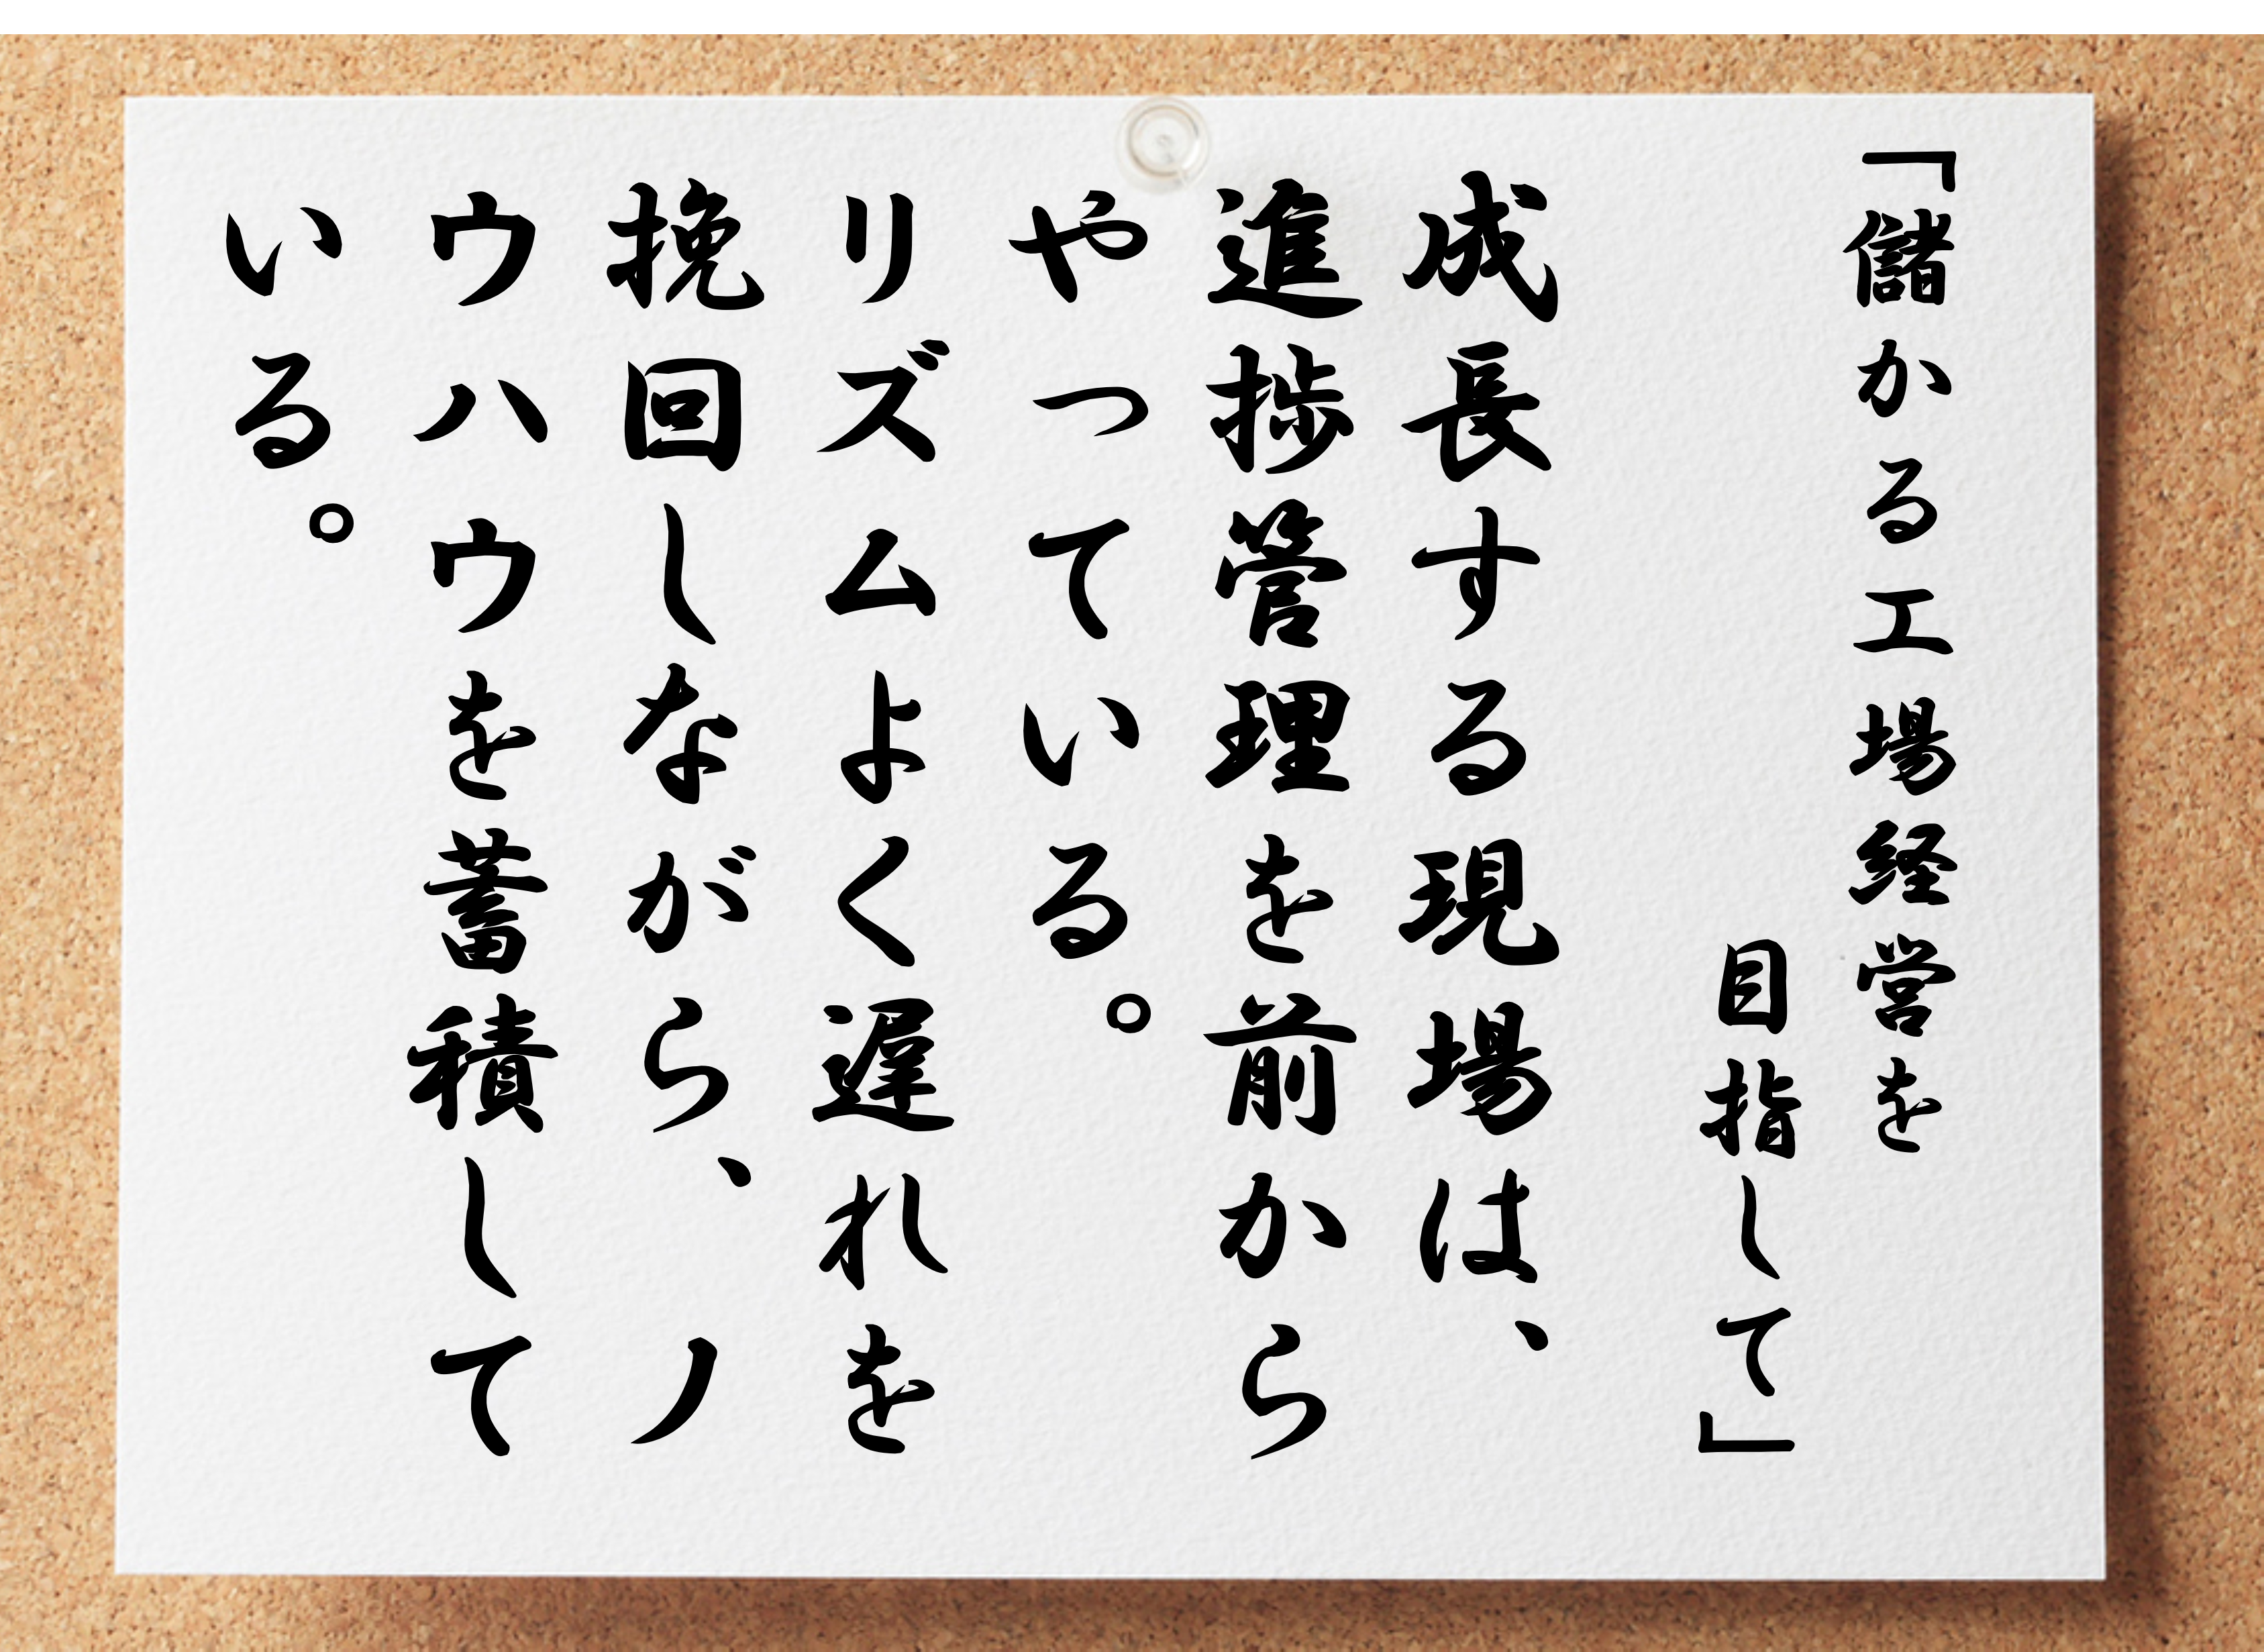 「儲かる工場経営を
目指して」
成長する現場は、
進捗管理を前から
やっている。
リズムよく遅れを
挽回しながら、ノ
ウハウを蓄積して
いる。